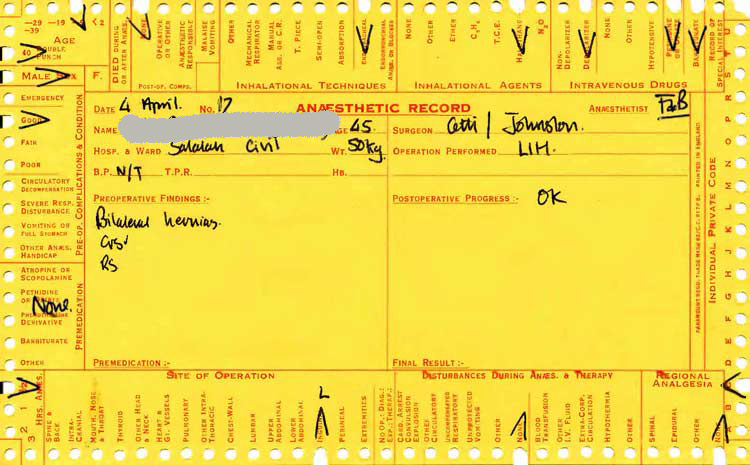 -29 -19 <2
-39
AGE
40 DOUBLE
PUNCH
MALE SEX F.
DIED DURING
OR AFTER ANÆS.
NONE
OPERATIVE
OR OTHER
ANÆSTHETIC
RESPONSIBLE
MALAISE
VOMITING
OTHER
POST-OP. COMPS.
MECHANICAL
RESPIRATOR
MANUAL
ASS. OR C.R.
T. PIECE
SEMI-OPEN
ABSORPTION
ENDOTRACHEAL
ENDOBRONCHIAL
ANÆS. OR BLOCKER
INHALATIONAL TECHNIQUES
NONE
OTHER
ETHER
C₃H₆
T.C.E.
HALOTHANE
N₂O
INHALATIONAL AGENTS
NON-
DEPOLARIZER
DEPOLARIZER
NONE
OTHER
HYPOTENSIVE
BARBITURATE
INTRAVENOUS DRUGS
RECORD OF
SPECIAL INTEREST
EMERGENCY
GOOD
FAIR
POOR
CIRCULATORY
DECOMPENSATION
SEVERE RESP.
DISTURBANCE
VOMITING OR
FULL STOMACH
OTHER ANÆS.
HANDICAP
PRE-OP. COMPLICATIONS & CONDITION
ATROPINE OR
SCOPOLAMINE
PETHIDINE
None.
DERIVATIVE
BARBITURATE
OTHER
PREMEDICATION
DATE 4 April. NO. 17 ANÆSTHETIC RECORD ANÆSTHETIST FaB
NAME AGE 45 SURGEON Cetti / Johnston.
HOSP. & WARD Salalah Civil WT. 50kg. OPERATION PERFORMED LIH.
B.P. N/T T.P.R. HB.
PREOPERATIVE FINDINGS :- POSTOPERATIVE PROGRESS :- OK
Bilateral hernias.
CVS✓
RS
PREMEDICATION :- FINAL RESULT :-
PRINTED IN ENGLAND
INDIVIDUAL PRIVATE CODE
HRS. ANÆS.
3 2 1
SITE OF OPERATION
SPINE &
BACK
INTRA-
CRANIAL
MOUTH, NOSE
& THROAT
THYROID
OTHER HEAD
& NECK
HEART &
GT. VESSELS
PULMONARY
OTHER INTRA-
THORACIC
CHEST-WALL
LUMBAR
UPPER
ABDOMINAL
LOWER
ABDOMINAL
L
PERINEAL
EXTREMITIES
NO OP.: DIAG.:
EXP.: THERAP.:
DISTURBANCES DURING ANÆS. & THERAPY
CARD. ARREST
CONVULSION
EXPLOSION
OTHER
CIRCULATORY
UNEXPRESSED
RESPIRATORY
UNEXPECTED
VOMITING
OTHER
NONE
BLOOD
TRANSFUSION
OTHER
I.V. FLUID
EXTRA-CORP.
CIRCULATION
HYPOTHERMIA
OTHER
REGIONAL
ANALGESIA
SPINAL
EPIDURAL
OTHER